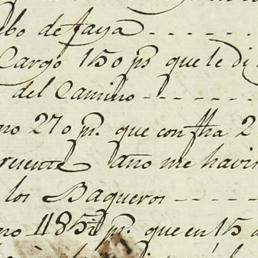 ebo de faya
Cargo 150 ps que le di
del Camino - - - - - -
no 270 ps. que con fha 2
resente año me havi
los Baqueros - - - -
no 485 ps. que en 15 d